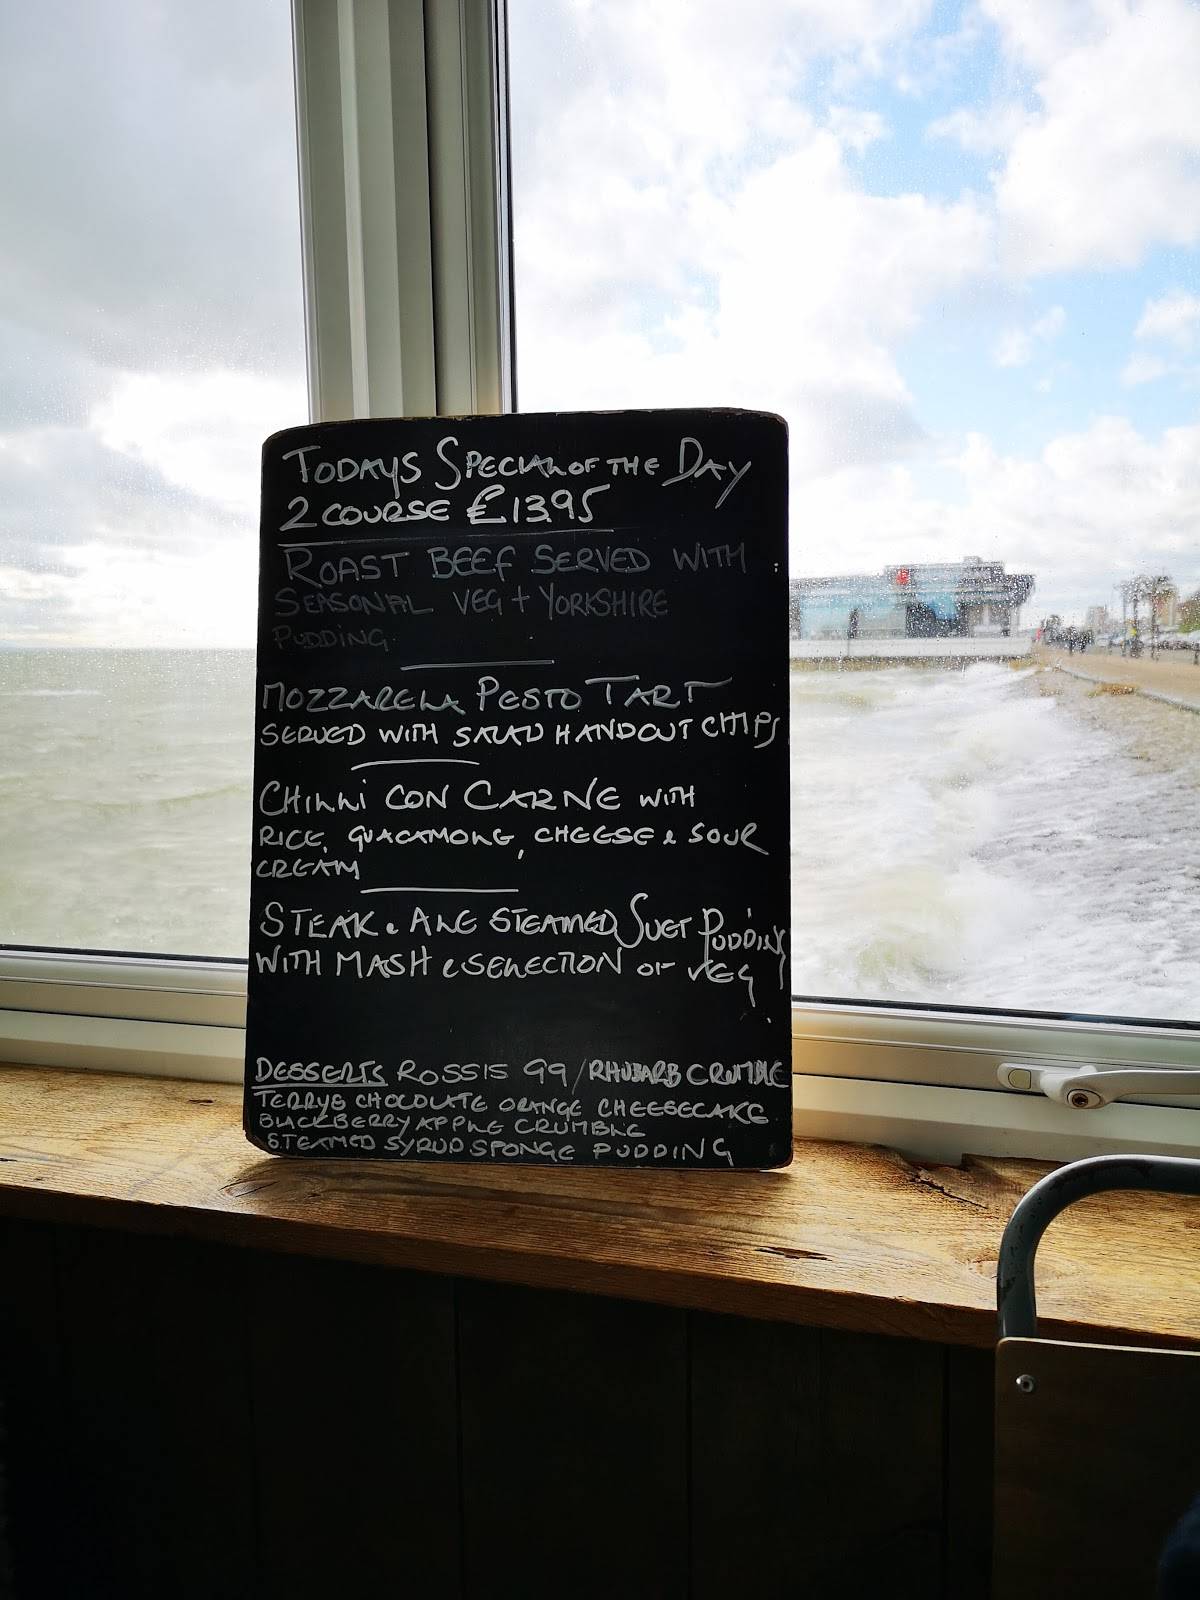 TODAYS SPECIAL OF THE DAY
2 COURSE £13.95
ROAST BEEF SERVED WITH
SEASONAL VEG + YORKSHIRE
PUDDING
MOZZARELA PESTO TART
SERVED WITH SALAD HANDCUT CHIPS
CHILLI CON CARNE WITH
RICE, GUACAMOLE, CHEESE & SOUR
CREAM
STEAK & ALE STEAMED SUET PUDDING
WITH MASH & SELECTION OF VEG
DESSERTS ROSSIS 99 / RHUBARB CRUMBLE
TERRYS CHOCLATE ORANGE CHEESECAKE
BLACKBERRY APPLE CRUMBLE
STEAMED SYRUP SPONGE PUDDING